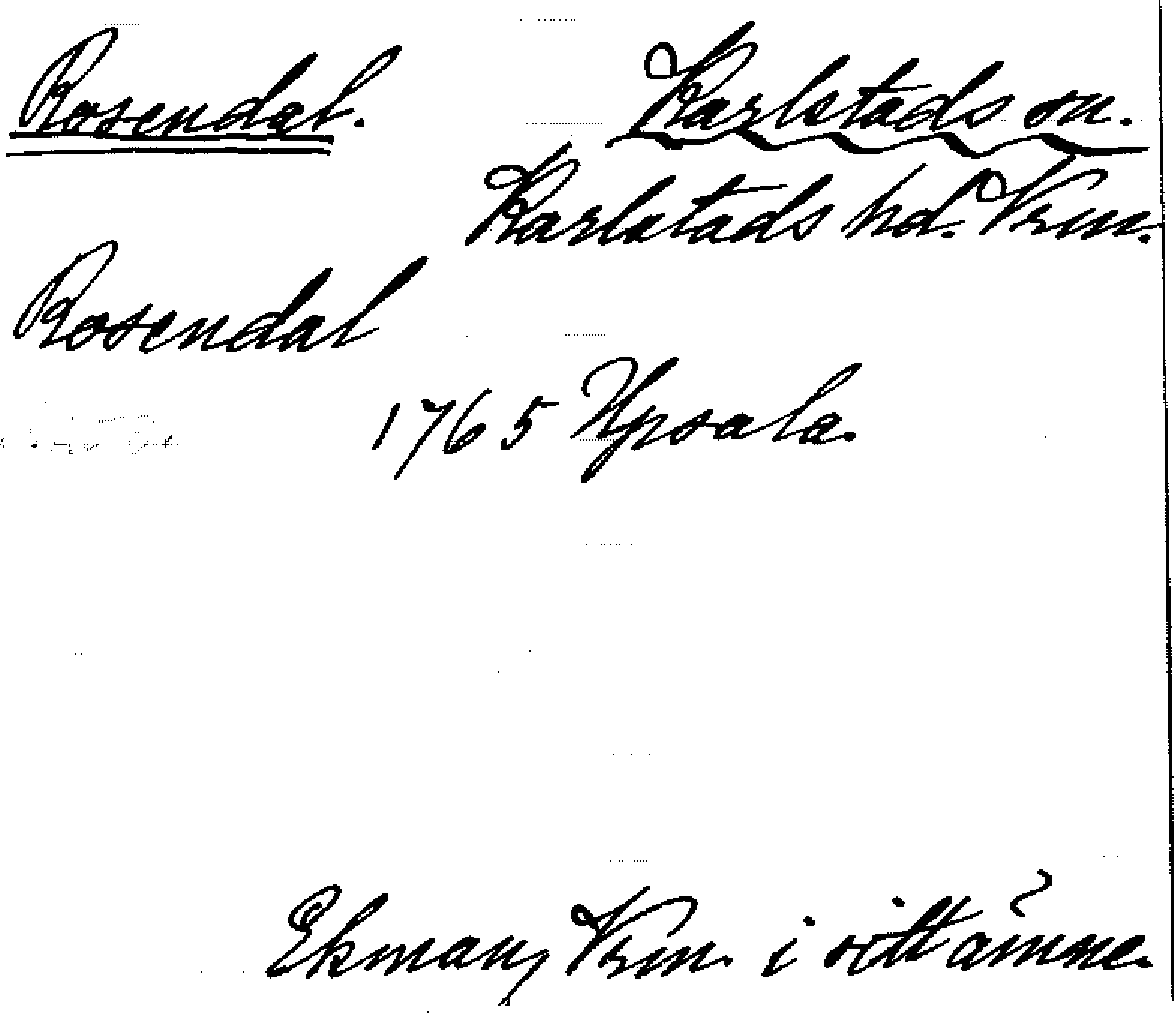 Rosendal. Karlstads sn.
Karlstads hd. Vrm.
Rosendal
1765 Upsala.
Ekman, Vrm. i sitt ämne.